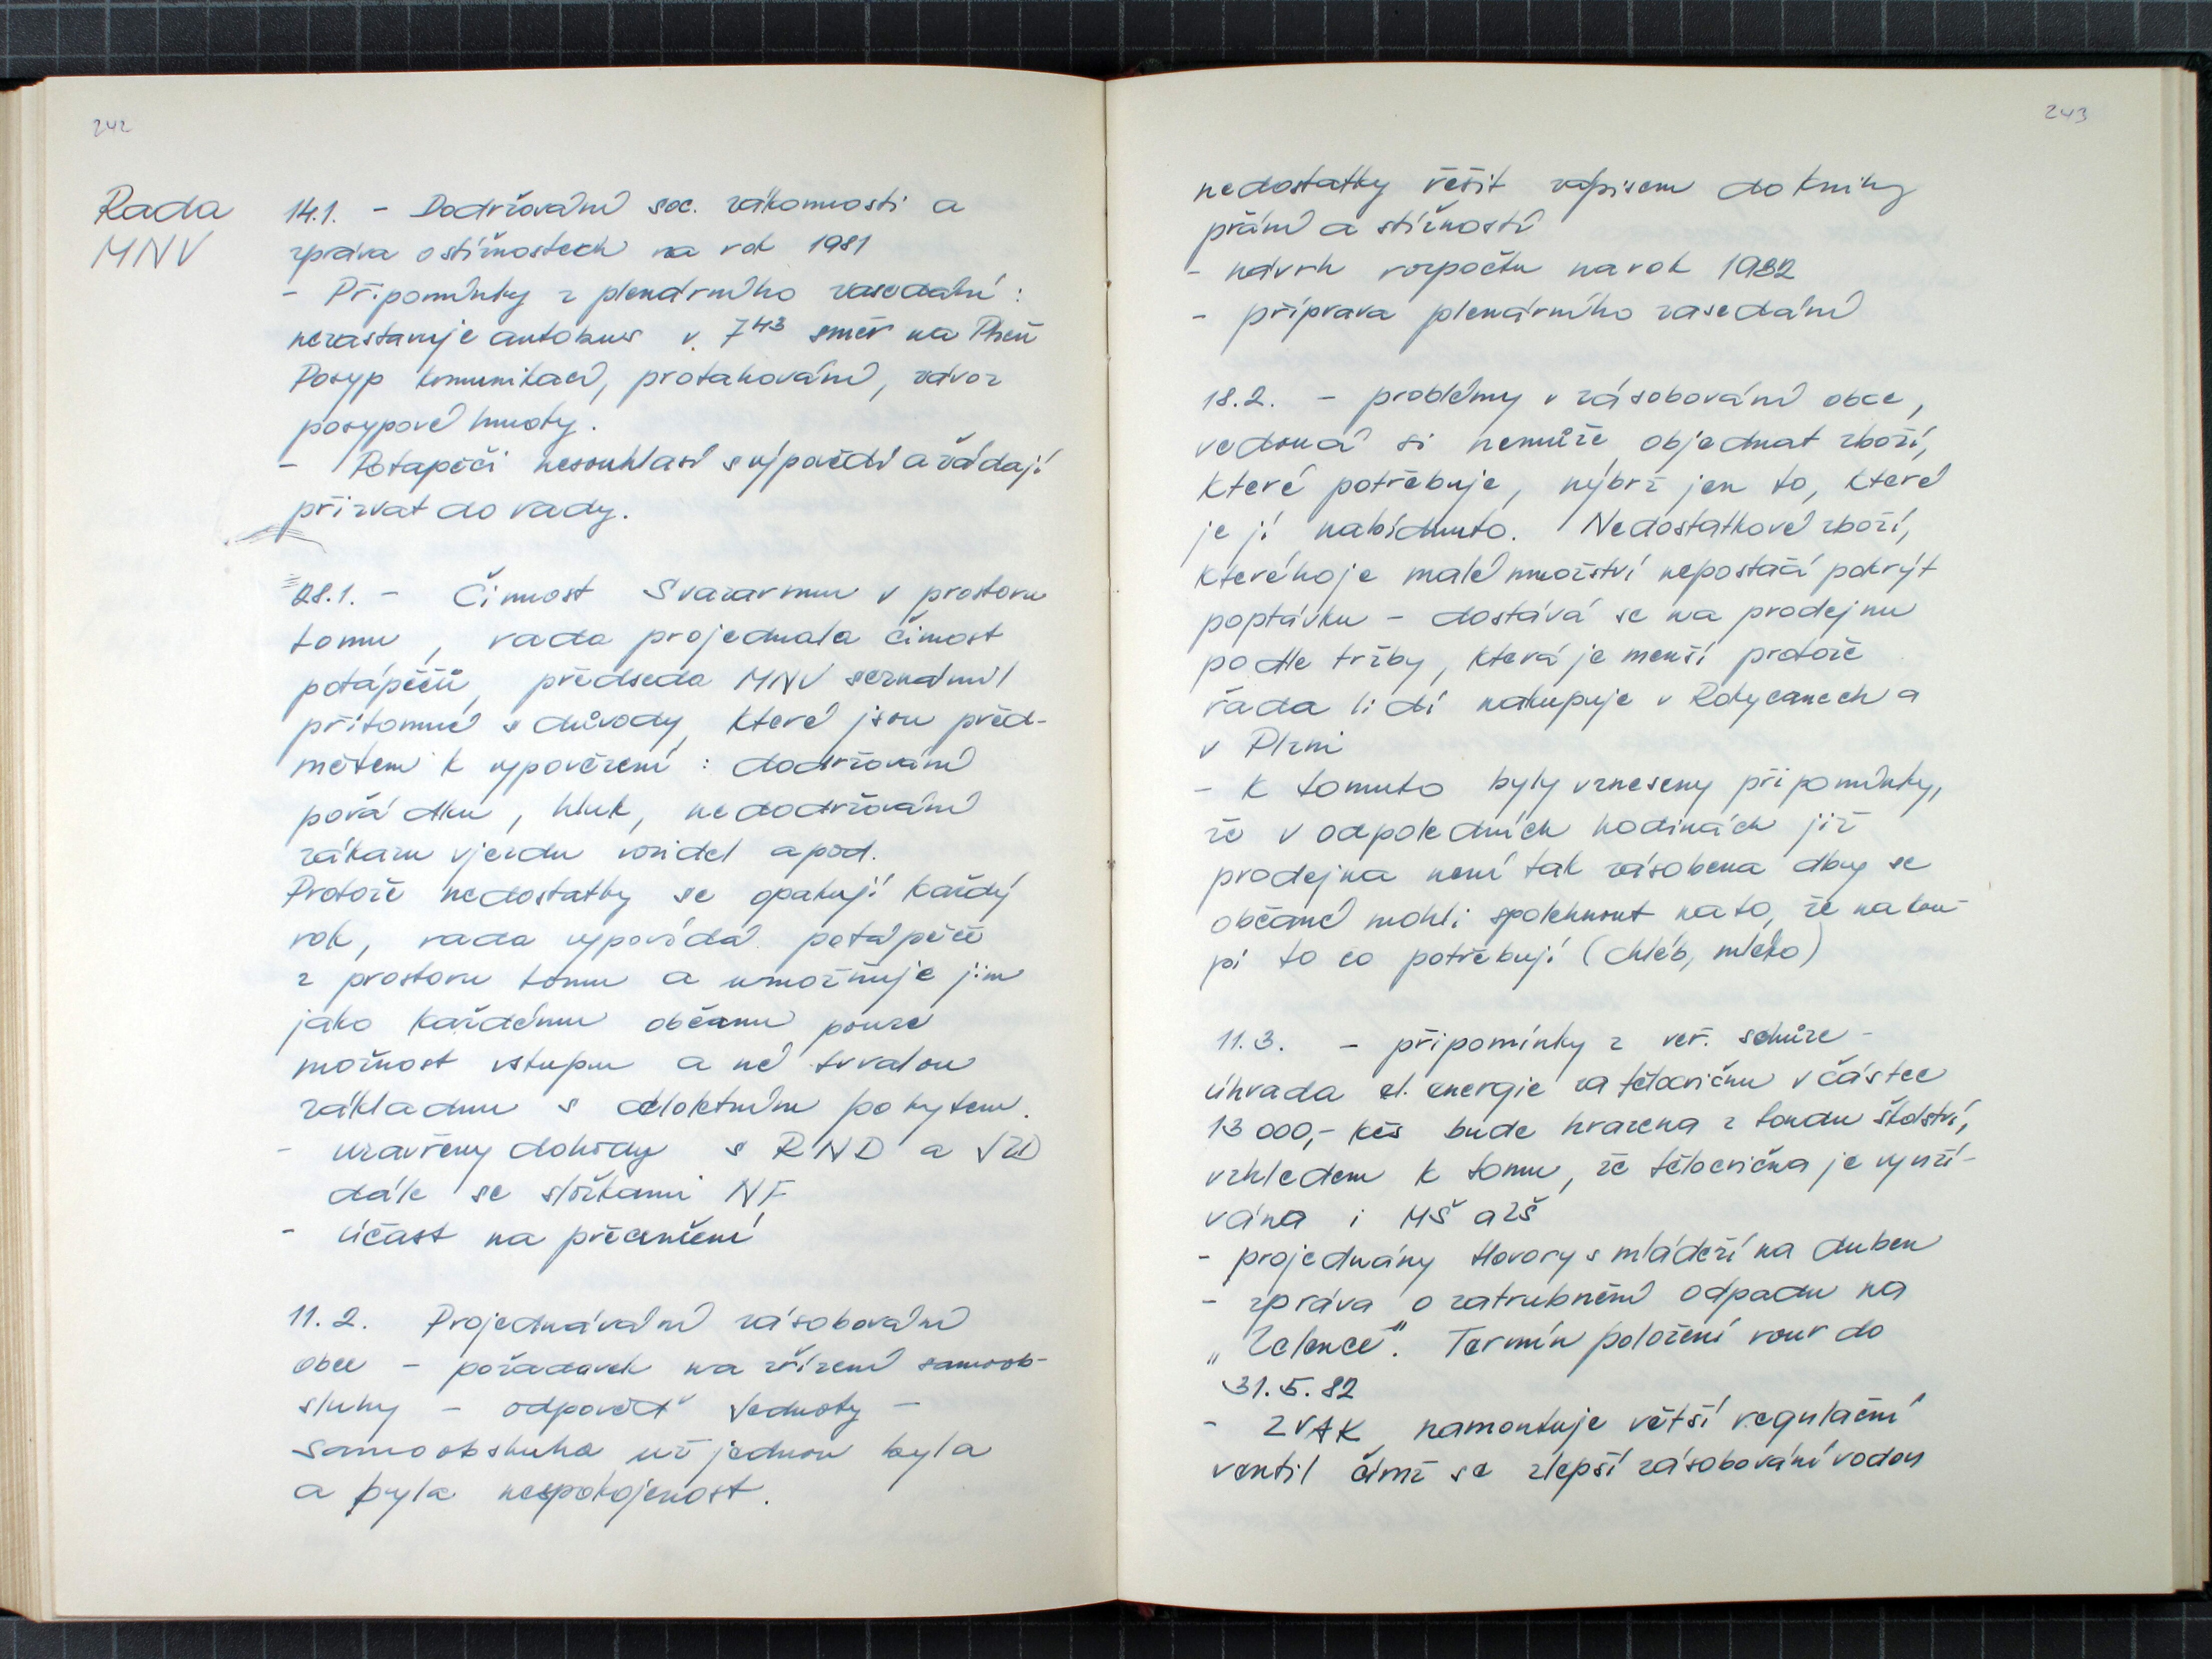 242
Rada
MNV
14.1. - Dodržování soc. zákonnosti a
zpráva o stížnostech na rok 1981
- Připomínky z plenárního zasedání:
nezastavuje autobus v 7⁴³ směr na Plzeň
Posyp komunikací, protahování, závoz
posypové hmoty.
- Potapěči nesouhlasí s výpovědí a žádají
přizvat do rady.
28.1. - Činnost Svazarmu v prostoru
lomu, rada projednala činost
potápěčů, předseda MNV seznámil
přítomné s důvody, které jsou před-
mětem k vypovězení: dodržování
pořádku, hluk, nedodržování
zákazu vjezdu vozidel apod.
Protože nedostatky se opakují každý
rok, rada vypovídá potápěče
z prostoru lomu a umožňuje jim
jako každému občanu pouze
možnost vstupu a né trvalou
základnu s celoletním pobytem.
- uzavřeny dohody s RND a JZD
dále se složkami NF
- účast na přecenění
11.2. Projednávání zásobování
obce - požadavek na zřízení samoob-
sluhy - odpověď Jednoty -
samoobsluha už jednou byla
a byla nespokojenost.
243
nedostatky řešit zápisem do knihy
přání a stížností
- návrh rozpočtu na rok 1982
- příprava plenárního zasedání
18.2. - problémy v zásobování obce,
vedoucí si nemůže objednat zboží,
které potřebuje, nýbrž jen to, které
je jí nabídnuto. Nedostatkové zboží,
kterého je malé množství nepostačí pokrýt
poptávku - dostává se na prodejnu
podle tržby, která je menší protože
řada lidí nakupuje v Rokycanech a
v Plzni
- K tomuto byly vzneseny připomínky,
že v odpoledních hodinách již
prodejna není tak zásobena aby se
občané mohli spolehnout na to, že nakou-
pí to co potřebují (chléb, mléko)
11.3. - připomínky z veř. schůze -
úhrada el. energie za tělocvičnu v částce
13 000,- Kčs bude hrazena z fondu školství,
vzhledem k tomu, že tělocvična je využí-
vána i MŠ a ZŠ
- projednány Hovory s mládeží na duben
- zpráva o zatrubnění odpadu na
„Zelence". Termín položení rour do
31.5.82
- ZVAK namontuje větší regulační
ventil čímž se zlepší zásobování vodou